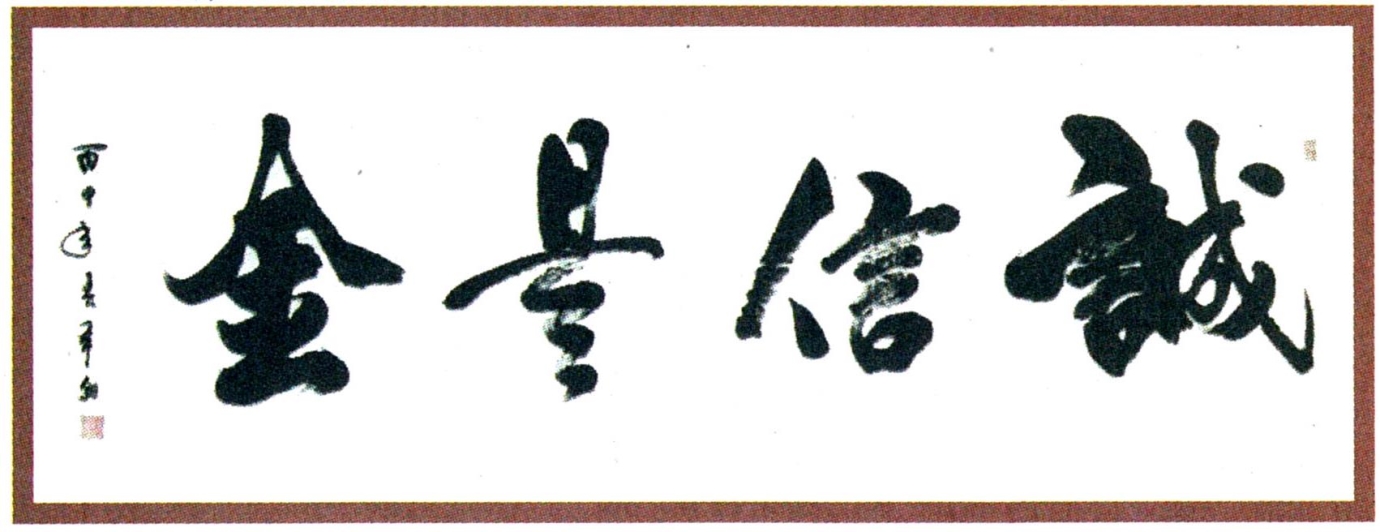 誠信是金
丙申年